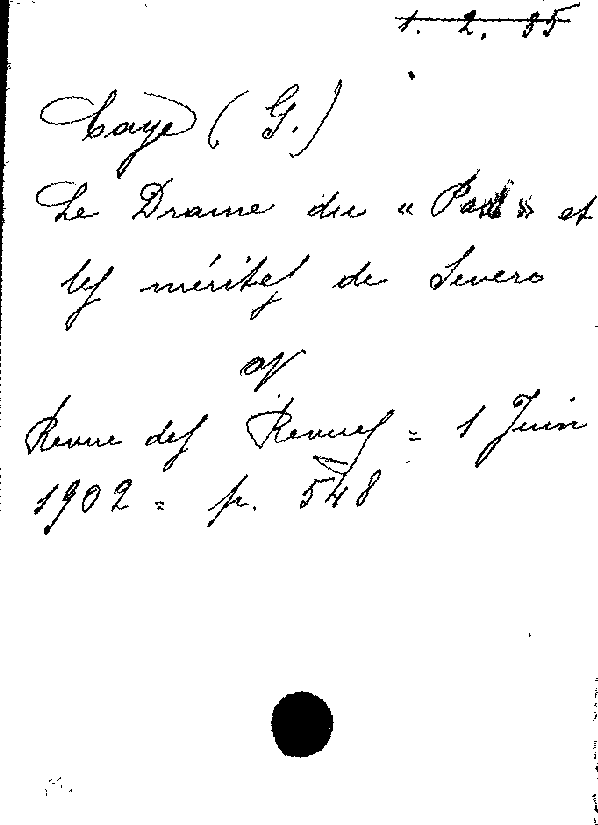 1. 2. 35
Caye (G.)
Le Drame du « Pax » et
les mérites de Severo
Revue des Revues = 1 Juin
1902 = p. 548